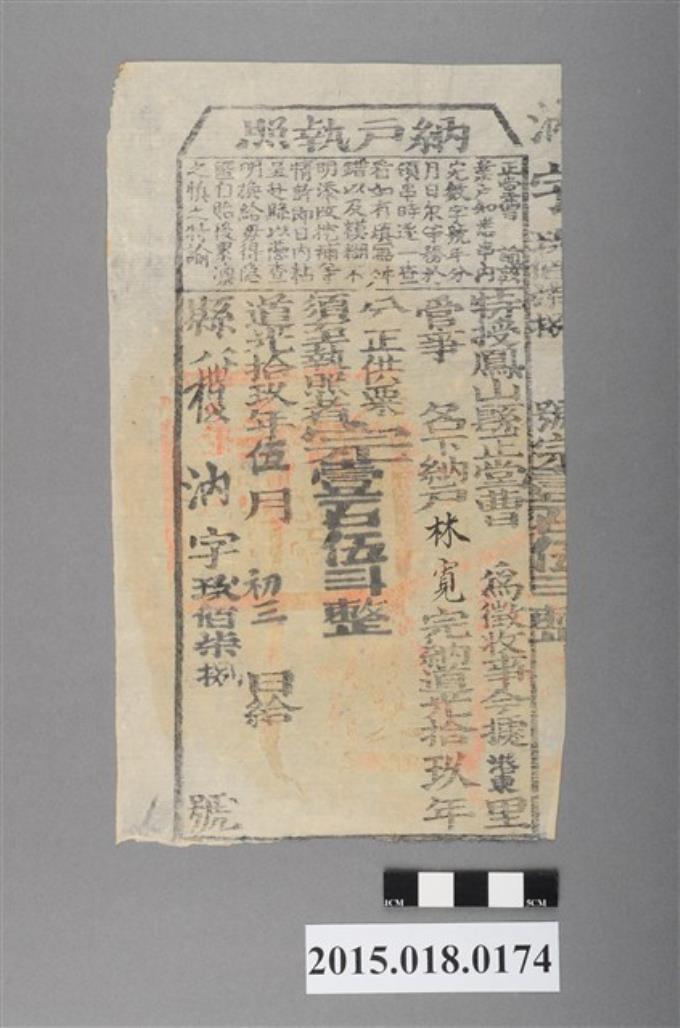 納戶執照
正堂曹 諭該
業戶知悉串內
完數字號年分
月日尔等務於
領串時逐一查
看如有填寫舛
錯以及模糊不
明添改挖補等
情許即日內粘
呈赴縣以憑查
明換給毋得隱
匿自貽後累凜
之慎之特諭
特授鳳山縣正堂曹 為徵收事今據港東里
管事 名下納戶林寬完納道光拾玖年
分正供粟完壹石伍斗整
須至執照者
道光拾玖年伍月初三日給
縣 訥字玖佰柒捌號
1CM
5CM
2015.018.0174